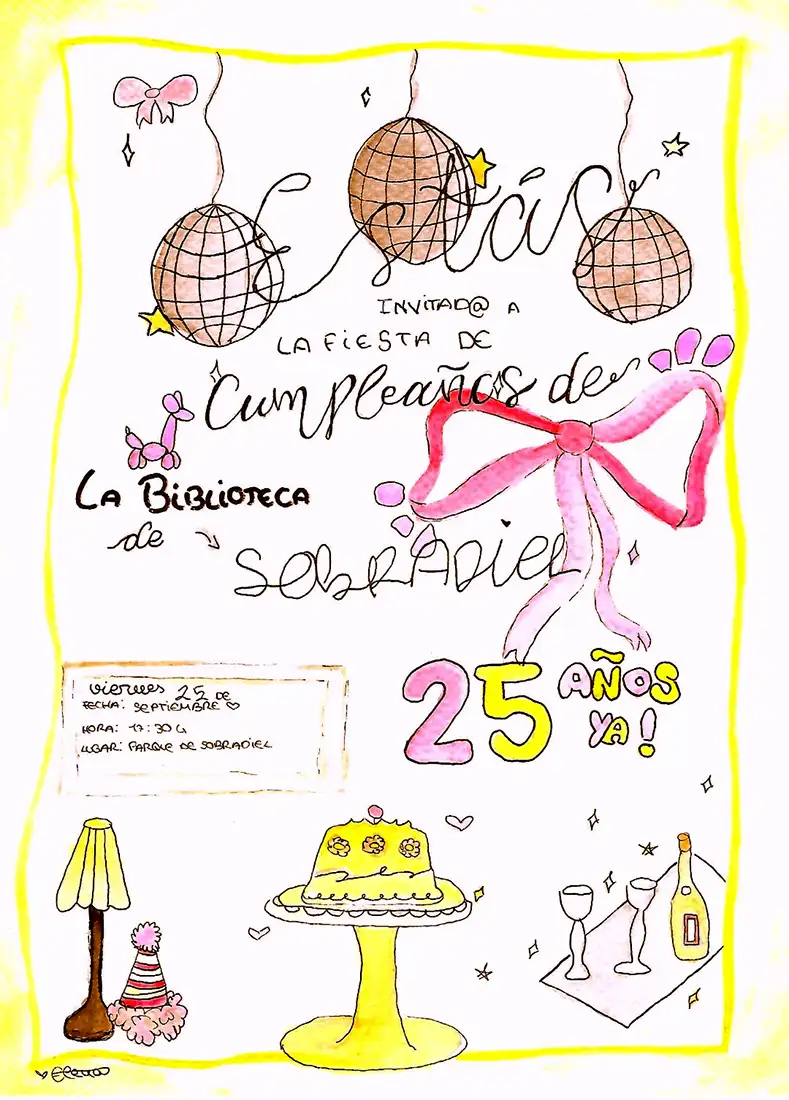 Estás
INVITAD@ A
LA FIESTA DE
Cumpleaños de
LA BIBLIOTECA
de
SOBRADIEL
25 AÑOS
YA!
viernes 25 DE
FECHA: SEPTIEMBRE
HORA: 17:30 h
LUGAR: PARQUE DE SOBRADIEL